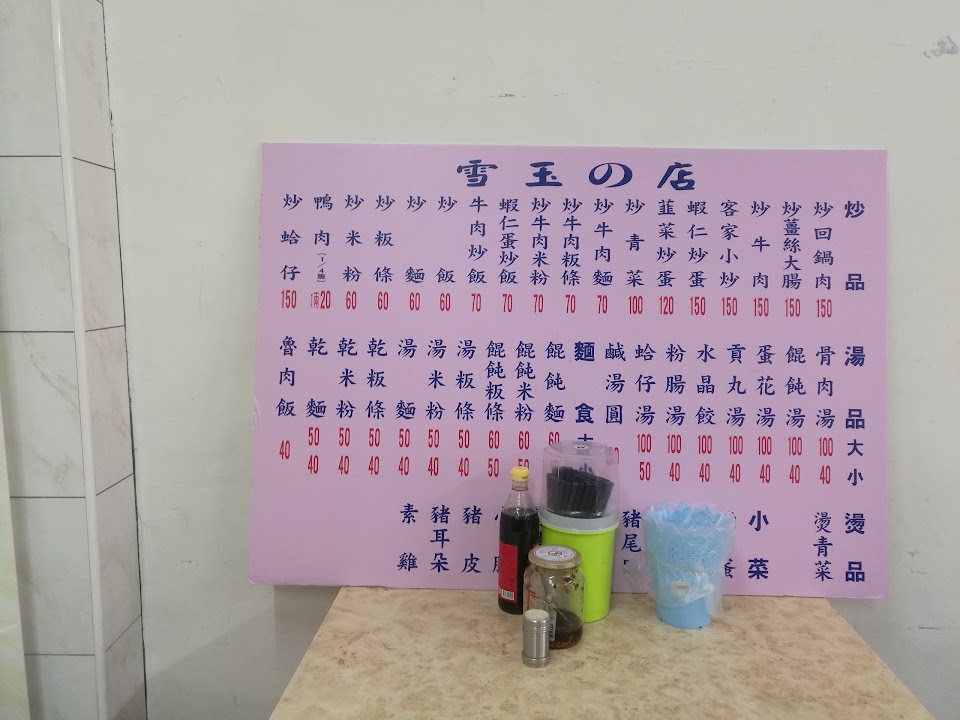 雪玉の店
炒品
炒回鍋肉 150
炒薑絲大腸 150
炒牛肉 150
客家小炒 150
蝦仁炒蛋 150
韮菜炒蛋 120
炒青菜 100
炒牛肉麵 70
炒牛肉粄條 70
炒牛肉米粉 70
蝦仁蛋炒飯 70
牛肉炒飯 70
炒飯 60
炒麵 60
炒粄條 60
炒米粉 60
鴨肉(1/4隻) 20
炒蛤仔 150
湯品 大 小
骨肉湯 100 40
餛飩湯 100 40
蛋花湯 100 40
貢丸湯 100 40
水晶餃湯 100 40
粉腸湯 100 40
蛤仔湯 100 50
鹹湯圓
麵食 大 小
餛飩麵 60
餛飩米粉 60 50
餛飩粄條 60 50
湯粄條 50 40
湯米粉 50 40
湯麵 50 40
乾粄條 50 40
乾米粉 50 40
乾麵 50 40
魯肉飯 40
燙品
燙青菜
小菜
豬尾
豬皮
豬耳朵
素雞